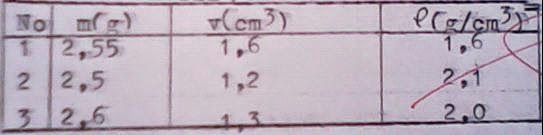 No m(g) v(cm³) ρ(g/cm³)
1 2,55 1,6 1,6
2 2,5 1,2 2,1
3 2,6 1,3 2,0